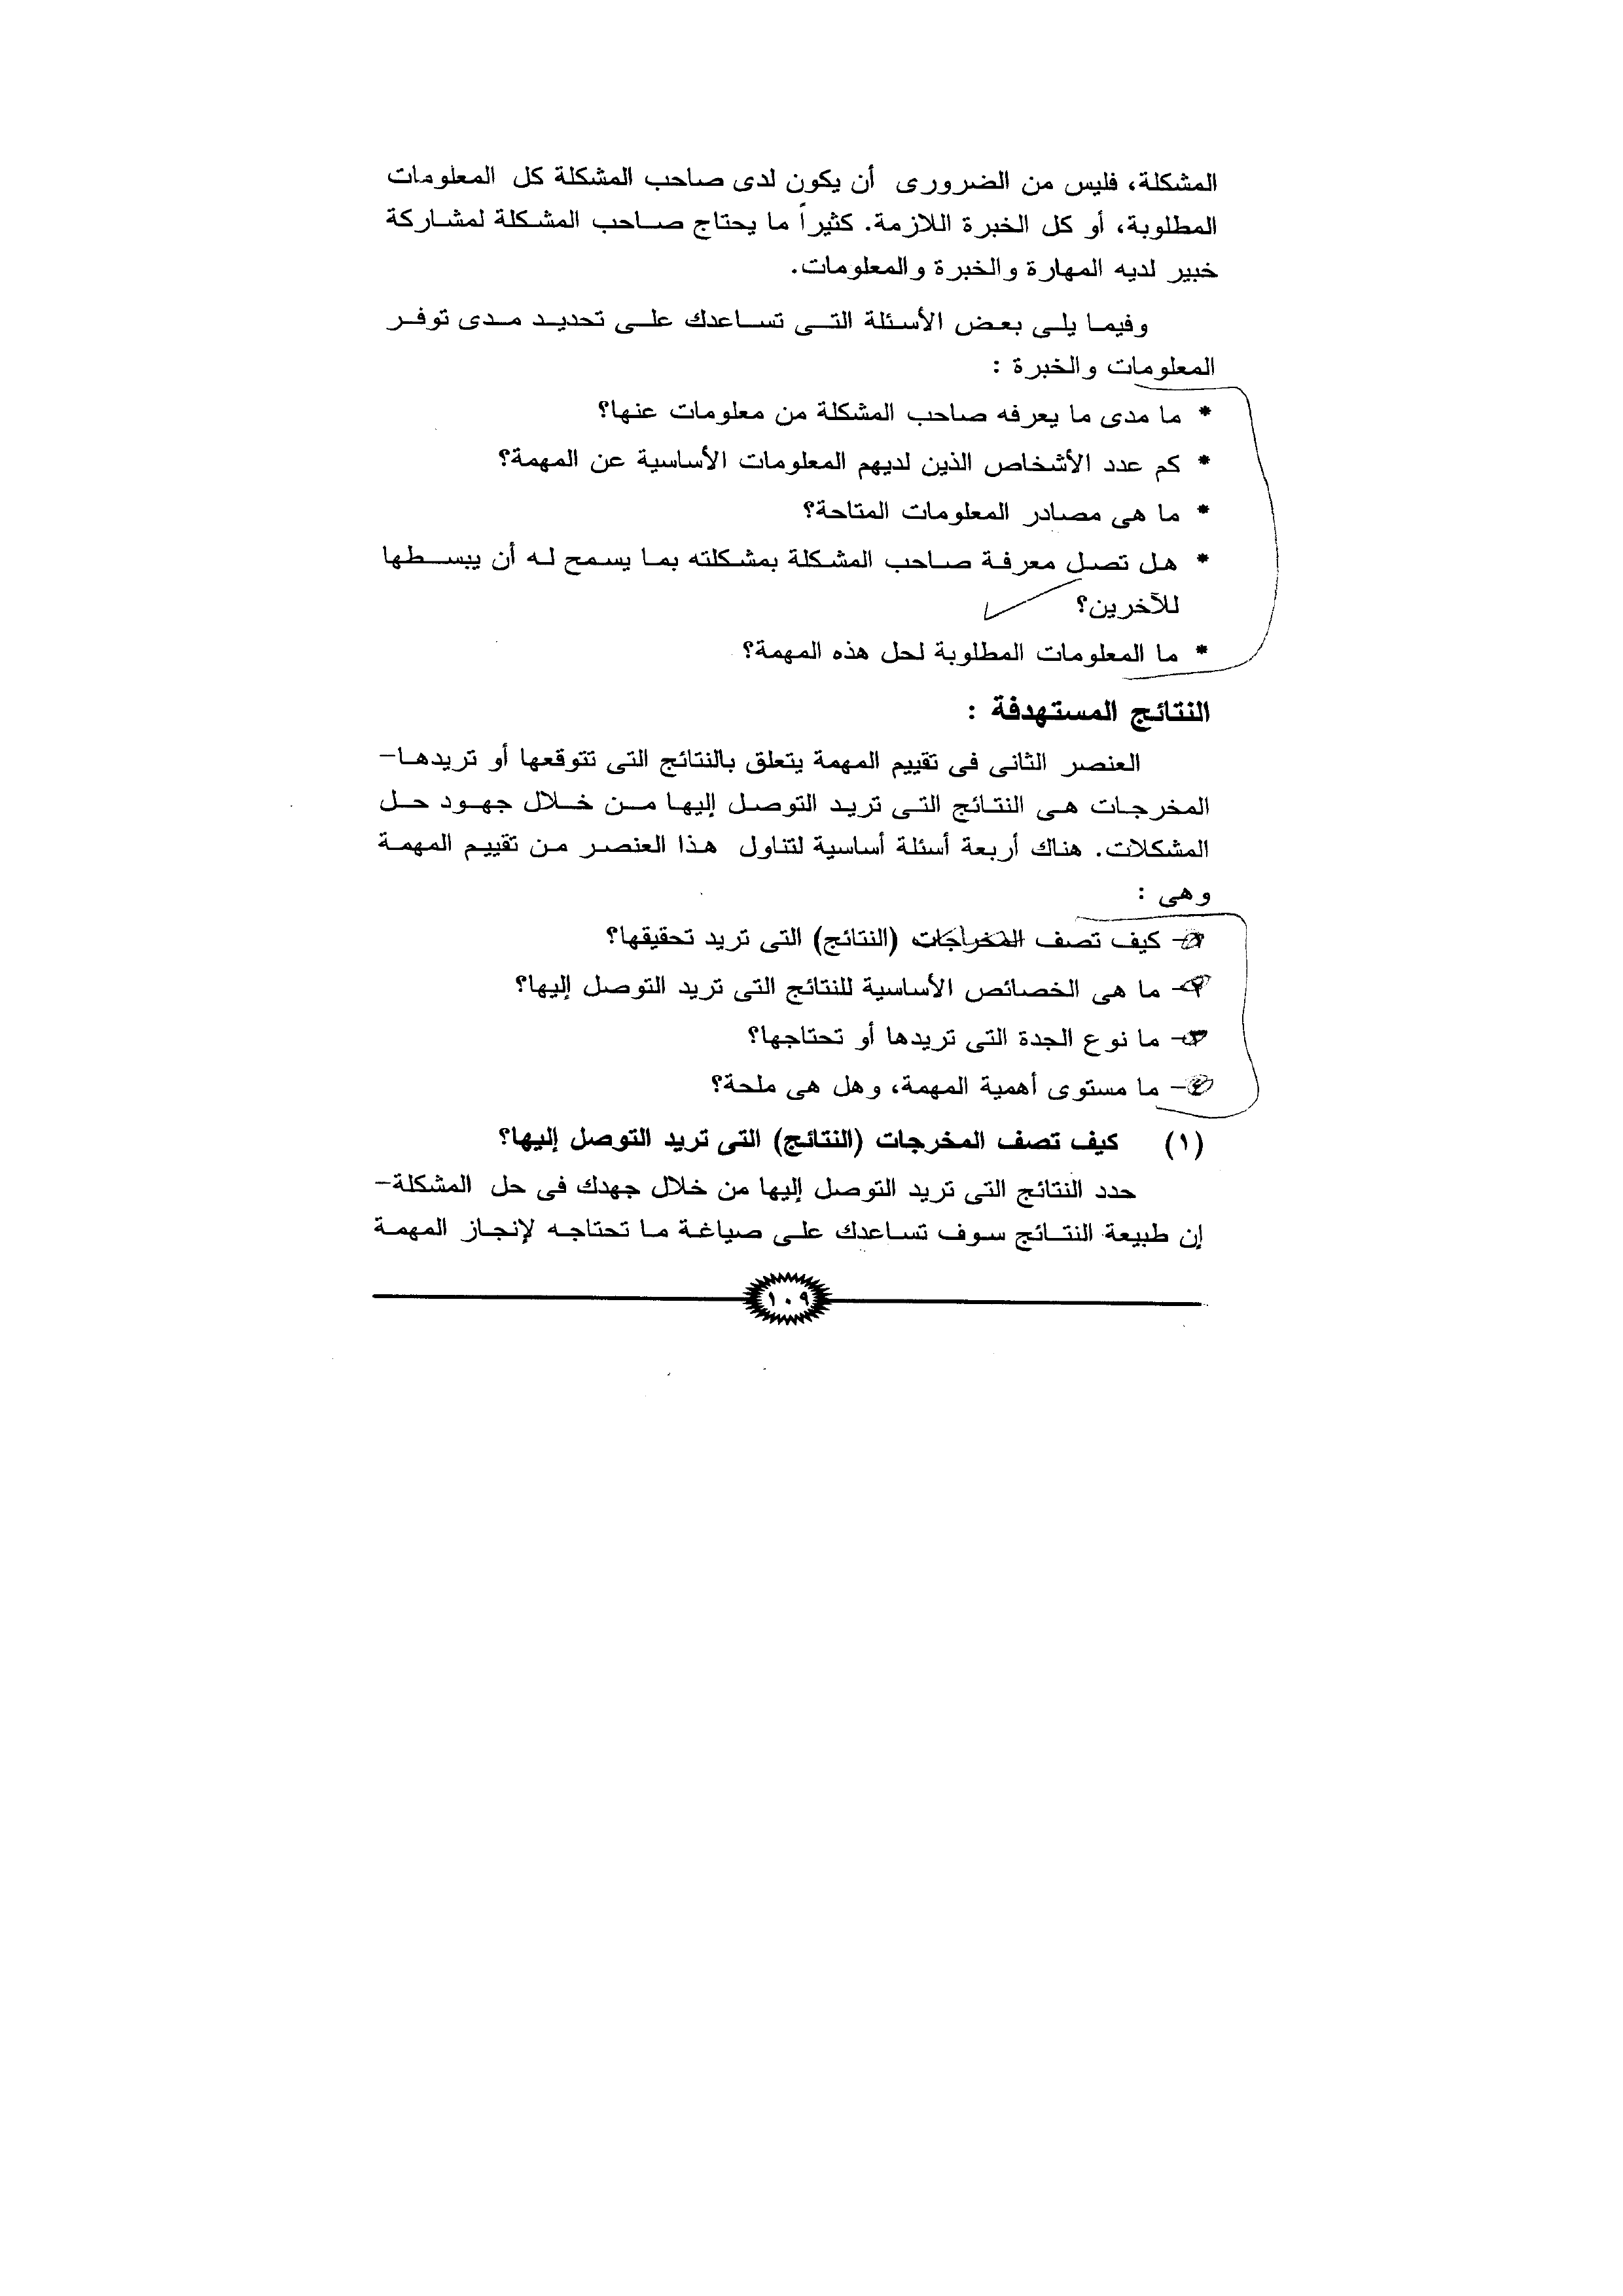 المشكلة، فليس من الضرورى أن يكون لدى صاحب المشكلة كل المعلومات
المطلوبة، أو كل الخبرة اللازمة. كثيراً ما يحتاج صاحب المشكلة لمشاركة
خبير لديه المهارة والخبرة والمعلومات.
وفيما يلى بعض الأسئلة التى تساعدك على تحديد مدى توفر
المعلومات والخبرة :
* ما مدى ما يعرفه صاحب المشكلة من معلومات عنها؟
* كم عدد الأشخاص الذين لديهم المعلومات الأساسية عن المهمة؟
* ما هى مصادر المعلومات المتاحة؟
* هل تصل معرفة صاحب المشكلة بمشكلته بما يسمح له أن يبسطها
للآخرين؟
* ما المعلومات المطلوبة لحل هذه المهمة؟
النتائج المستهدفة :
العنصر الثانى فى تقييم المهمة يتعلق بالنتائج التى تتوقعها أو تريدها-
المخرجات هى النتائج التى تريد التوصل إليها من خلال جهود حل
المشكلات. هناك أربعة أسئلة أساسية لتناول هذا العنصر من تقييم المهمة
وهى :
- كيف تصف المخراجات (النتائج) التى تريد تحقيقها؟
- ما هى الخصائص الأساسية للنتائج التى تريد التوصل إليها؟
- ما نوع الجدة التى تريدها أو تحتاجها؟
- ما مستوى أهمية المهمة، وهل هى ملحة؟
(١) كيف تصف المخرجات (النتائج) التى تريد التوصل إليها؟
حدد النتائج التى تريد التوصل إليها من خلال جهدك فى حل المشكلة-
إن طبيعة النتائج سوف تساعدك على صياغة ما تحتاجه لإنجاز المهمة
١٠٩